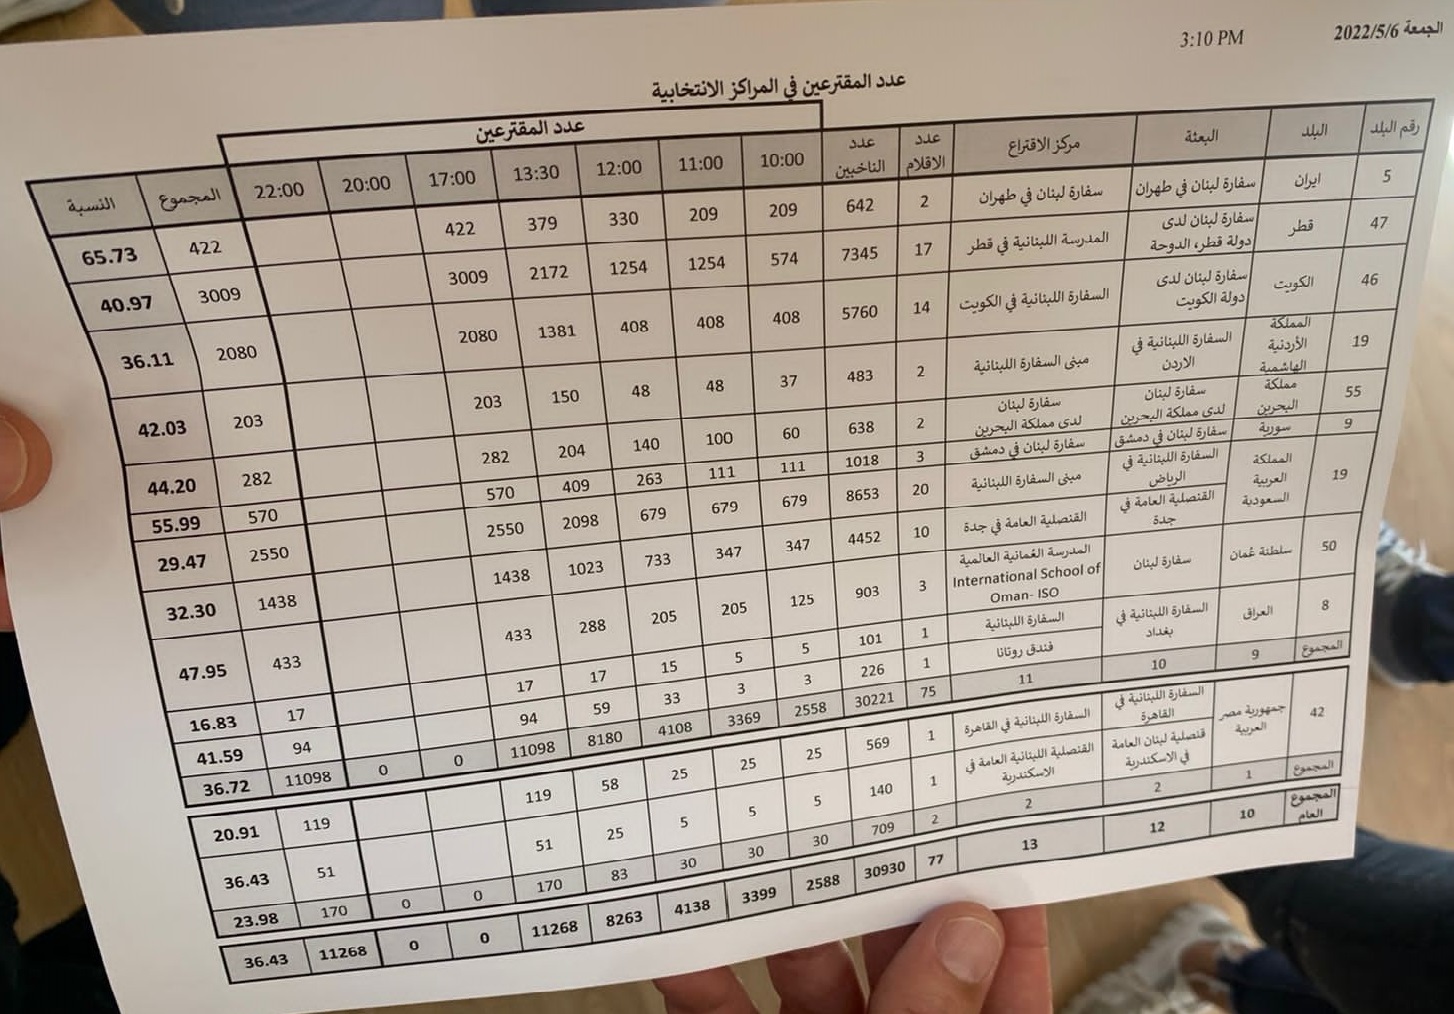 الجمعة 2022/5/6
3:10 PM
عدد المقترعين في المراكز الانتخابية
عدد المقترعين
رقم البلد البلد البعثة مركز الاقتراع عدد الاقلام عدد الناخبين 10:00 11:00 12:00 13:30 17:00 20:00 22:00 المجموع النسبة
5 ايران سفارة لبنان في طهران سفارة لبنان في طهران 2 642 209 209 330 379 422 422 65.73
47 قطر سفارة لبنان لدى دولة قطر، الدوحة المدرسة اللبنانية في قطر 17 7345 574 1254 1254 2172 3009 3009 40.97
46 الكويت سفارة لبنان لدى دولة الكويت السفارة اللبنانية في الكويت 14 5760 408 408 408 1381 2080 2080 36.11
19 المملكة الأردنية الهاشمية السفارة اللبنانية في الاردن مبنى السفارة اللبنانية 2 483 37 48 48 150 203 203 42.03
55 مملكة البحرين سفارة لبنان لدى مملكة البحرين سفارة لبنان لدى مملكة البحرين 2 638 60 100 140 204 282 282 44.20
9 سورية سفارة لبنان في دمشق سفارة لبنان في دمشق 3 1018 111 111 263 409 570 570 55.99
19 المملكة العربية السعودية السفارة اللبنانية في الرياض مبنى السفارة اللبنانية 20 8653 679 679 679 2098 2550 2550 29.47
القنصلية العامة في جدة القنصلية العامة في جدة 10 4452 347 347 733 1023 1438 1438 32.30
50 سلطنة عُمان سفارة لبنان المدرسة العُمانية العالمية International School of Oman- ISO 3 903 125 205 205 288 433 433 47.95
8 العراق السفارة اللبنانية في بغداد السفارة اللبنانية 1 101 5 5 15 17 17 17 16.83
فندق روتانا 1 226 3 3 33 59 94 94 41.59
المجموع 9 10 11 75 30221 2558 3369 4108 8180 11098 0 0 11098 36.72
42 جمهورية مصر العربية السفارة اللبنانية في القاهرة السفارة اللبنانية في القاهرة 1 569 25 25 25 58 119 119 20.91
قنصلية لبنان العامة في الاسكندرية القنصلية اللبنانية العامة في الاسكندرية 1 140 5 5 5 25 51 51 36.43
المجموع 1 2 2 2 709 30 30 30 83 170 0 0 170 23.98
المجموع العام 10 12 13 77 30930 2588 3399 4138 8263 11268 0 0 11268 36.43